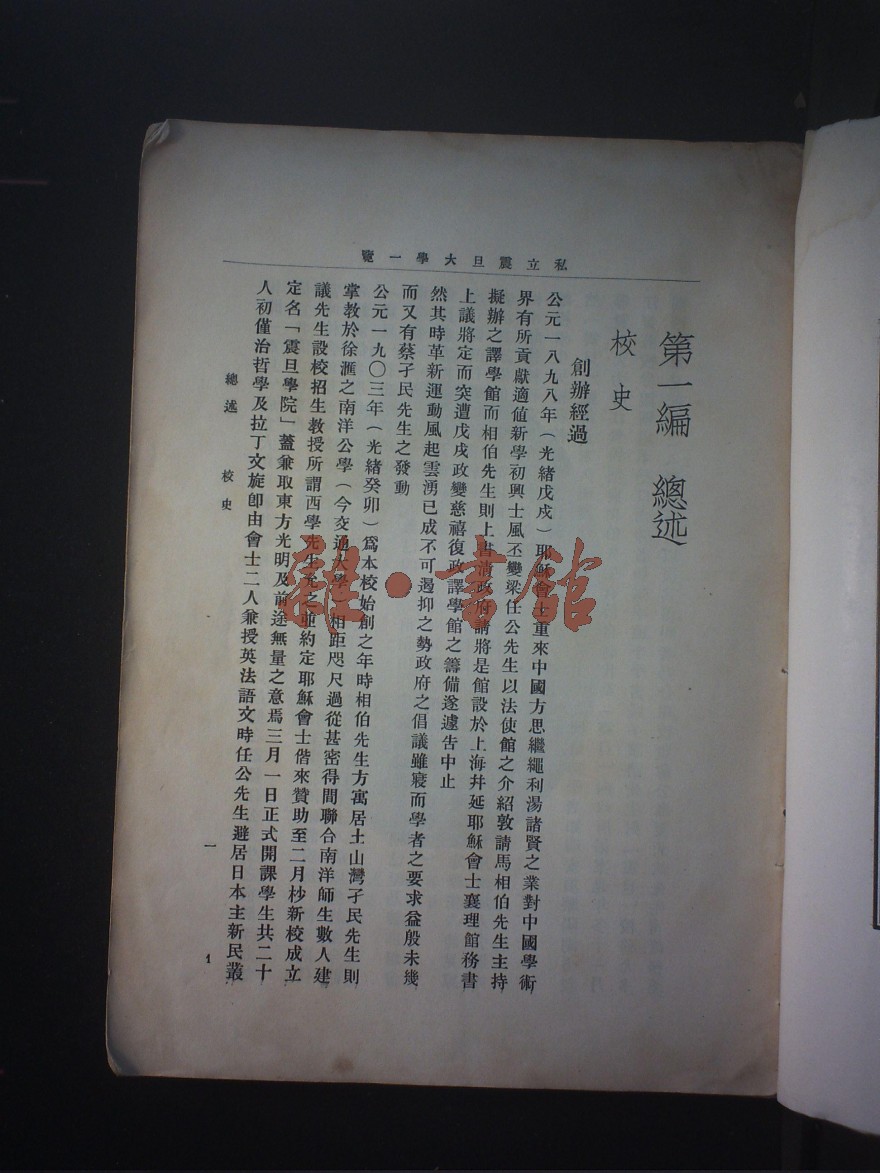 私立震旦大學一覽
第一編 總述
校史
創辦經過
公元一八九八年（光緒戊戌）耶穌會士重來中國方思繼繩利湯諸賢之業對中國學術
界有所貢獻適値新學初興士風丕變梁任公先生以法使館之介紹敦請馬相伯先生主持
擬辦之譯學館而相伯先生則上書清政府請將是館設於上海幷延耶穌會士襄理館務書
上議將定而突遭戊戌政變慈禧復政譯學館之籌備遂遽告中止
然其時革新運動風起雲湧已成不可遏抑之勢政府之倡議雖寢而學者之要求益殷未幾
而又有蔡孑民先生之發動
公元一九〇三年（光緒癸卯）爲本校始創之年時相伯先生方寓居土山灣孑民先生則
掌教於徐滙之南洋公學（今交通大學）相距咫尺過從甚密得間聯合南洋師生數人建
議先生設校招生教授所謂西學先生允之並約定耶穌會士偕來贊助至二月杪新校成立
定名「震旦學院」蓋兼取東方光明及前途無量之意焉三月一日正式開課學生共二十
人初僅治哲學及拉丁文旋卽由會士二人兼授英法語文時任公先生避居日本主新民叢
總述 校史
一
1
雜·書館